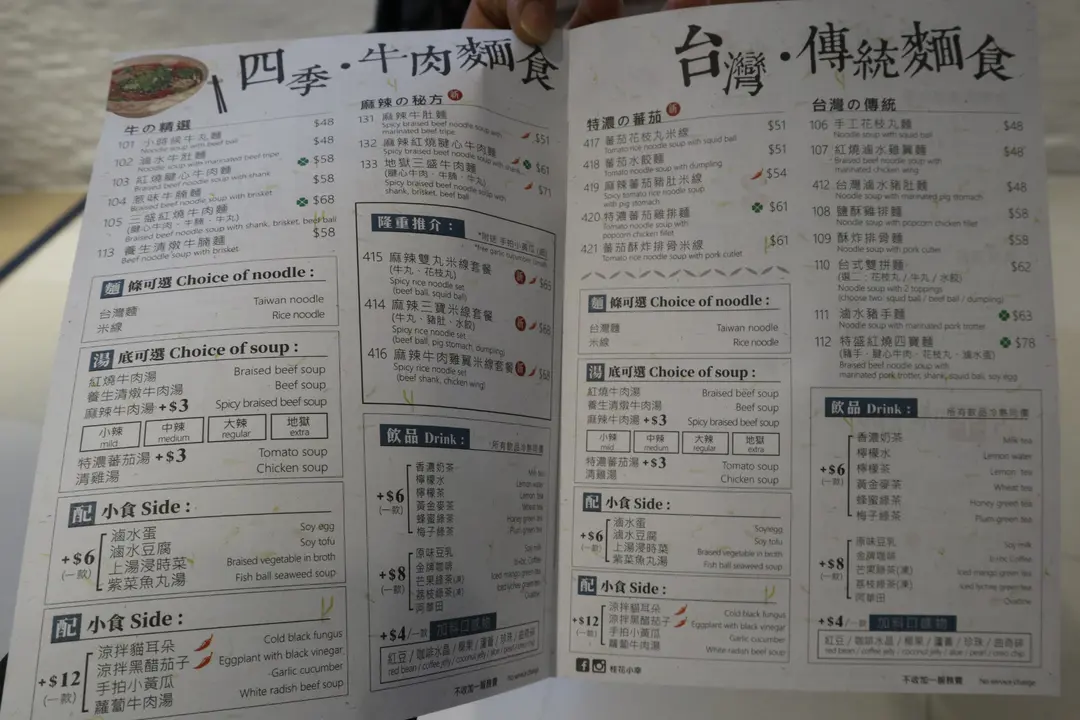 四季·牛肉麵食
牛の精選
101 小路候牛丸麵 $48
Noodle soup with beef ball
102 滷水牛肚麵 $48
Noodle soup with marinated beef tripe
103 紅燒腱心牛肉麵 $58
Braised beef noodle soup with shank
104 原味牛腩麵 $58
Braised beef noodle soup with brisket
105 三盛紅燒牛肉麵 $68
(腱心牛肉、牛腩、牛丸)
Braised beef noodle soup with shank, brisket, beef ball
113 養生清燉牛腩麵 $58
Beef noodle soup with brisket
麵 條可選 Choice of noodle :
台灣麵 Taiwan noodle
米線 Rice noodle
湯 底可選 Choice of soup :
紅燒牛肉湯 Braised beef soup
養生清燉牛肉湯 Beef soup
麻辣牛肉湯 +$3 Spicy braised beef soup
小辣 中辣 大辣 地獄
mild medium regular extra
特濃蕃茄湯 +$3 Tomato soup
清雞湯 Chicken soup
配 小食 Side :
+$6 (一款)
滷水蛋 Soy egg
滷水豆腐 Soy tofu
上湯浸時菜 Braised vegetable in broth
紫菜魚丸湯 Fish ball seaweed soup
配 小食 Side :
+$12 (一款)
涼拌貓耳朵 Cold black fungus
涼拌黑醋茄子 Eggplant with black vinegar
手拍小黃瓜 Garlic cucumber
蘿蔔牛肉湯 White radish beef soup
麻辣の秘方 新
131 麻辣牛肚麵 $51
Spicy braised beef noodle soup with
marinated beef tripe
132 麻辣紅燒腱心牛肉麵 $61
Spicy braised beef noodle soup with shank
133 地獄三盛牛肉麵 $71
(腱心牛肉、牛腩、牛丸)
Spicy braised beef noodle soup with
shank, brisket, beef ball
隆重推介 :
*附送 手拍小黃瓜
*free garlic cucumber
415 麻辣雙丸米線套餐 新 $65
(牛丸、花枝丸)
Spicy rice noodle set
(beef ball, squid ball)
414 麻辣三寶米線套餐 新 $68
(牛丸、豬肚、水餃)
Spicy rice noodle set
(beef ball, pig stomach, dumping)
416 麻辣牛肉雞翼米線套餐 新 $68
Spicy rice noodle set
(beef shank, chicken wing)
飲品 Drink : 所有飲品冷熱同價
+$6 (一款)
香濃奶茶 Milk tea
檸檬水 Lemon water
檸檬茶 Lemon tea
黃金麥茶 Wheat tea
蜂蜜綠茶 Honey green tea
梅子綠茶 Plum green tea
+$8 (一款)
原味豆乳 Soy milk
金牌咖啡 Coffee
芒果綠茶(凍) Iced mango green tea
荔枝綠茶(凍) Iced lychee green tea
阿華田 Ovaltine
+$4/一款 加料口感物
紅豆 / 咖啡水晶 / 椰果 / 蘆薈 / 珍珠 / 曲奇碎
red bean / coffee jelly / coconut jelly / aloe / pearl / oreo chip
不收加一服務費 No service charge
台灣·傳統麵食
特濃の蕃茄 新
417 蕃茄花枝丸米線 $51
Tomato rice noodle soup with squid ball
418 蕃茄水餃麵 $51
Tomato noodle soup with dumpling
419 麻辣蕃茄豬肚米線 $54
Spicy tomato rice noodle soup
with pig stomach
420 特濃蕃茄雞排麵 $61
Tomato noodle soup with
popcorn chicken fillet
421 蕃茄酥炸排骨米線 $61
Tomato rice noodle soup with pork cutlet
麵 條可選 Choice of noodle :
台灣麵 Taiwan noodle
米線 Rice noodle
湯 底可選 Choice of soup :
紅燒牛肉湯 Braised beef soup
養生清燉牛肉湯 Beef soup
麻辣牛肉湯 +$3 Spicy braised beef soup
小辣 中辣 大辣 地獄
mild medium regular extra
特濃蕃茄湯 +$3 Tomato soup
清雞湯 Chicken soup
配 小食 Side :
+$6 (一款)
滷水蛋 Soy egg
滷水豆腐 Soy tofu
上湯浸時菜 Braised vegetable in broth
紫菜魚丸湯 Fish ball seaweed soup
配 小食 Side :
+$12 (一款)
涼拌貓耳朵 Cold black fungus
涼拌黑醋茄子 Eggplant with black vinegar
手拍小黃瓜 Garlic cucumber
蘿蔔牛肉湯 White radish beef soup
桂花小幸
台灣の傳統
106 手工花枝丸麵 $48
Noodle soup with squid ball
107 紅燒滷水雞翼麵 $48
Braised beef noodle soup with
marinated chicken wing
412 台灣滷水豬肚麵 $48
Noodle soup with marinated pig stomach
108 鹽酥雞排麵 $58
Noodle soup with popcorn chicken fillet
109 酥炸排骨麵 $58
Noodle soup with pork cutlet
110 台式雙拼麵 $62
(選二：花枝丸 / 牛丸 / 水餃)
Noodle soup with 2 toppings
(choose two: squid ball / beef ball / dumping)
111 滷水豬手麵 $63
Noodle soup with marinated pork trotter
112 特盛紅燒四寶麵 $78
(豬手、腱心牛肉、花枝丸、滷水蛋)
Braised beef noodle soup with
marinated pork trotter, shank, squid ball, soy egg
飲品 Drink : 所有飲品冷熱同價
+$6 (一款)
香濃奶茶 Milk tea
檸檬水 Lemon water
檸檬茶 Lemon tea
黃金麥茶 Wheat tea
蜂蜜綠茶 Honey green tea
梅子綠茶 Plum green tea
+$8 (一款)
原味豆乳 Soy milk
金牌咖啡 Coffee
芒果綠茶(凍) Iced mango green tea
荔枝綠茶(凍) Iced lychee green tea
阿華田 Ovaltine
+$4/一款 加料口感物
紅豆 / 咖啡水晶 / 椰果 / 蘆薈 / 珍珠 / 曲奇碎
red bean / coffee jelly / coconut jelly / aloe / pearl / oreo chip
不收加一服務費 No service charge